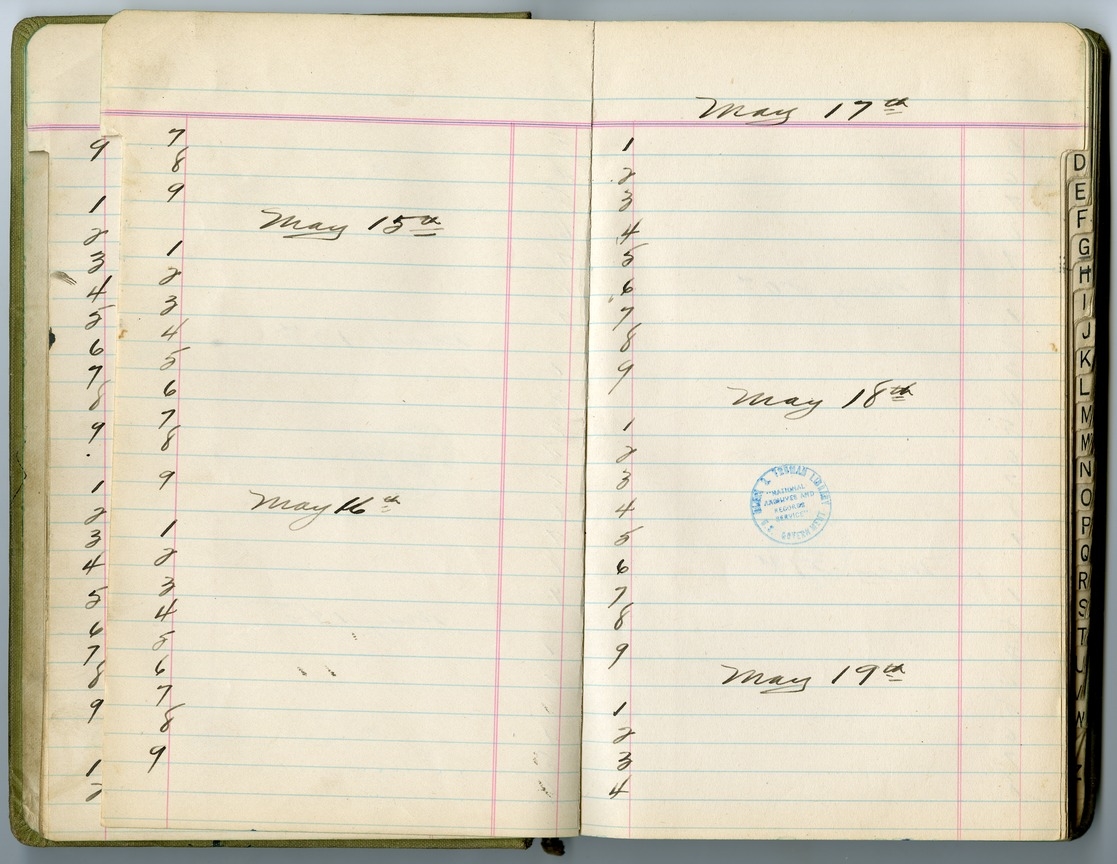 9
1
2
3
4
5
6
7
8
9
1
2
3
4
5
6
7
8
9
1
2
7
8
9
May 15th
1
2
3
4
5
6
7
8
9
May 16th
1
2
3
4
5
6
7
8
9
May 17th
1
2
3
4
5
6
7
8
9
May 18th
1
2
3
4
5
6
7
8
9
May 19th
1
2
3
4
TRUMAN LIBRARY
"NATIONAL
ARCHIVES AND
RECORDS
SERVICE"
GOVERNMENT
D
E
F
G
H
I
J
K
L
M
M
N
O
P
Q
R
S
T